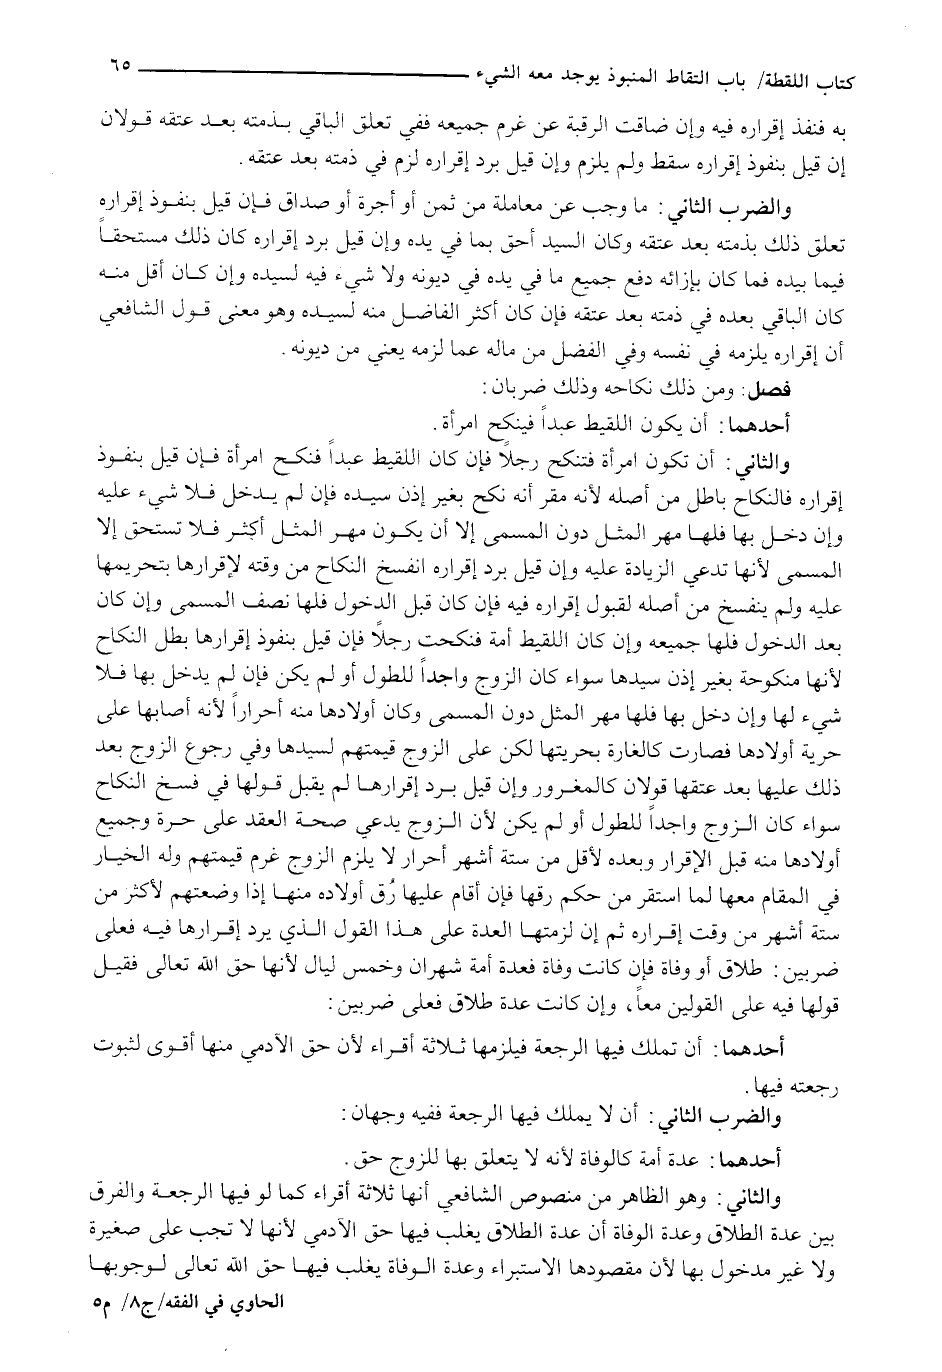 كتاب اللقطة/ باب التقاط المنبوذ يوجد معه الشيء ٦٥
به فنفذ إقراره فيه وإن ضاقت الرقبة عن غرم جميعه ففي تعلق الباقي بذمته بعد عتقه قولان
إن قيل بنفوذ إقراره سقط ولم يلزم وإن قيل برد إقراره لزم في ذمته بعد عتقه.
والضرب الثاني: ما وجب عن معاملة من ثمن أو أجرة أو صداق فإن قيل بنفوذ إقراره
تعلق ذلك بذمته بعد عتقه وكان السيد أحق بما في يده وإن قيل برد إقراره كان ذلك مستحقاً
فيما بيده فما كان بإزائه دفع جميع ما في يده في ديونه ولا شيء فيه لسيده وإن كان أقل منه
كان الباقي بعده في ذمته بعد عتقه فإن كان أكثر الفاضل منه لسيده وهو معنى قول الشافعي
أن إقراره يلزمه في نفسه وفي الفضل من ماله عما لزمه يعني من ديونه.
فصل: ومن ذلك نكاحه وذلك ضربان:
أحدهما: أن يكون اللقيط عبداً فينكح امرأة.
والثاني: أن تكون امرأة فتنكح رجلاً فإن كان اللقيط عبداً فنكح امرأة فإن قيل بنفوذ
إقراره فالنكاح باطل من أصله لأنه مقر أنه نكح بغير إذن سيده فإن لم يدخل فلا شيء عليه
وإن دخل بها فلها مهر المثل دون المسمى إلا أن يكون مهر المثل أكثر فلا تستحق إلا
المسمى لأنها تدعي الزيادة عليه وإن قيل برد إقراره انفسخ النكاح من وقته لإقرارها بتحريمها
عليه ولم ينفسخ من أصله لقبول إقراره فيه فإن كان قبل الدخول فلها نصف المسمى وإن كان
بعد الدخول فلها جميعه وإن كان اللقيط أمة فنكحت رجلاً فإن قيل بنفوذ إقرارها بطل النكاح
لأنها منكوحة بغير إذن سيدها سواء كان الزوج واجداً للطول أو لم يكن فإن لم يدخل بها فلا
شيء لها وإن دخل بها فلها مهر المثل دون المسمى وكان أولادها منه أحراراً لأنه أصابها على
حرية أولادها فصارت كالغارة بحريتها لكن على الزوج قيمتهم لسيدها وفي رجوع الزوج بعد
ذلك عليها بعد عتقها قولان كالمغرور وإن قيل برد إقرارها لم يقبل قولها في فسخ النكاح
سواء كان الزوج واجداً للطول أو لم يكن لأن الزوج يدعي صحة العقد على حرة وجميع
أولادها منه قبل الإقرار وبعده لأقل من ستة أشهر أحرار لا يلزم الزوج غرم قيمتهم وله الخيار
في المقام معها لما استقر من حكم رقها فإن أقام عليها رُق أولاده منها إذا وضعتهم لأكثر من
ستة أشهر من وقت إقراره ثم إن لزمتها العدة على هذا القول الذي يرد إقرارها فيه فعلى
ضربين: طلاق أو وفاة فإن كانت وفاة فعدة أمة شهران وخمس ليال لأنها حق الله تعالى فقيل
قولها فيه على القولين معاً، وإن كانت عدة طلاق فعلى ضربين:
أحدهما: أن تملك فيها الرجعة فيلزمها ثلاثة أقراء لأن حق الآدمي منها أقوى لثبوت
رجعته فيها.
والضرب الثاني: أن لا يملك فيها الرجعة ففيه وجهان:
أحدهما: عدة أمة كالوفاة لأنه لا يتعلق بها للزوج حق.
والثاني: وهو الظاهر من منصوص الشافعي أنها ثلاثة أقراء كما لو فيها الرجعة والفرق
بين عدة الطلاق وعدة الوفاة أن عدة الطلاق يغلب فيها حق الآدمي لأنها لا تجب على صغيرة
ولا غير مدخول بها لأن مقصودها الاستبراء وعدة الوفاة يغلب فيها حق الله تعالى لوجوبها
الحاوي في الفقه/ ج٨/ م٥